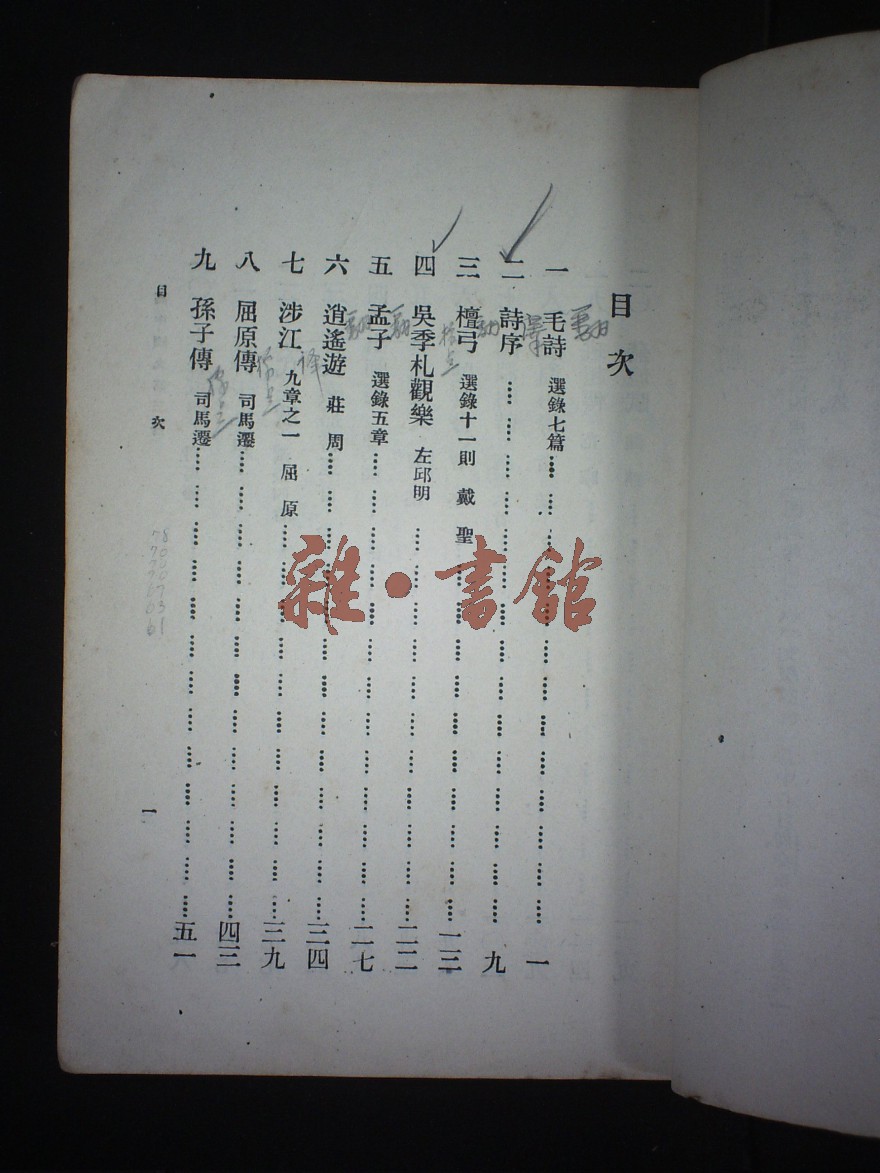 目次
一 毛詩 選錄七篇 一
二 詩序 九
三 檀弓 選錄十一則 戴聖 一三
四 吳季札觀樂 左邱明 二二
五 孟子 選錄五章 二七
六 逍遙遊 莊周 三四
七 涉江 九章之一 屈原 三九
八 屈原傳 司馬遷 四三
九 孫子傳 司馬遷 五一
目 次
一
雜·書館